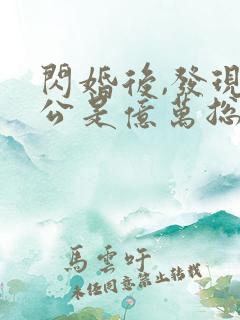 閃婚後,發現
公是億萬總
馬雲吁
未經同意禁止转载